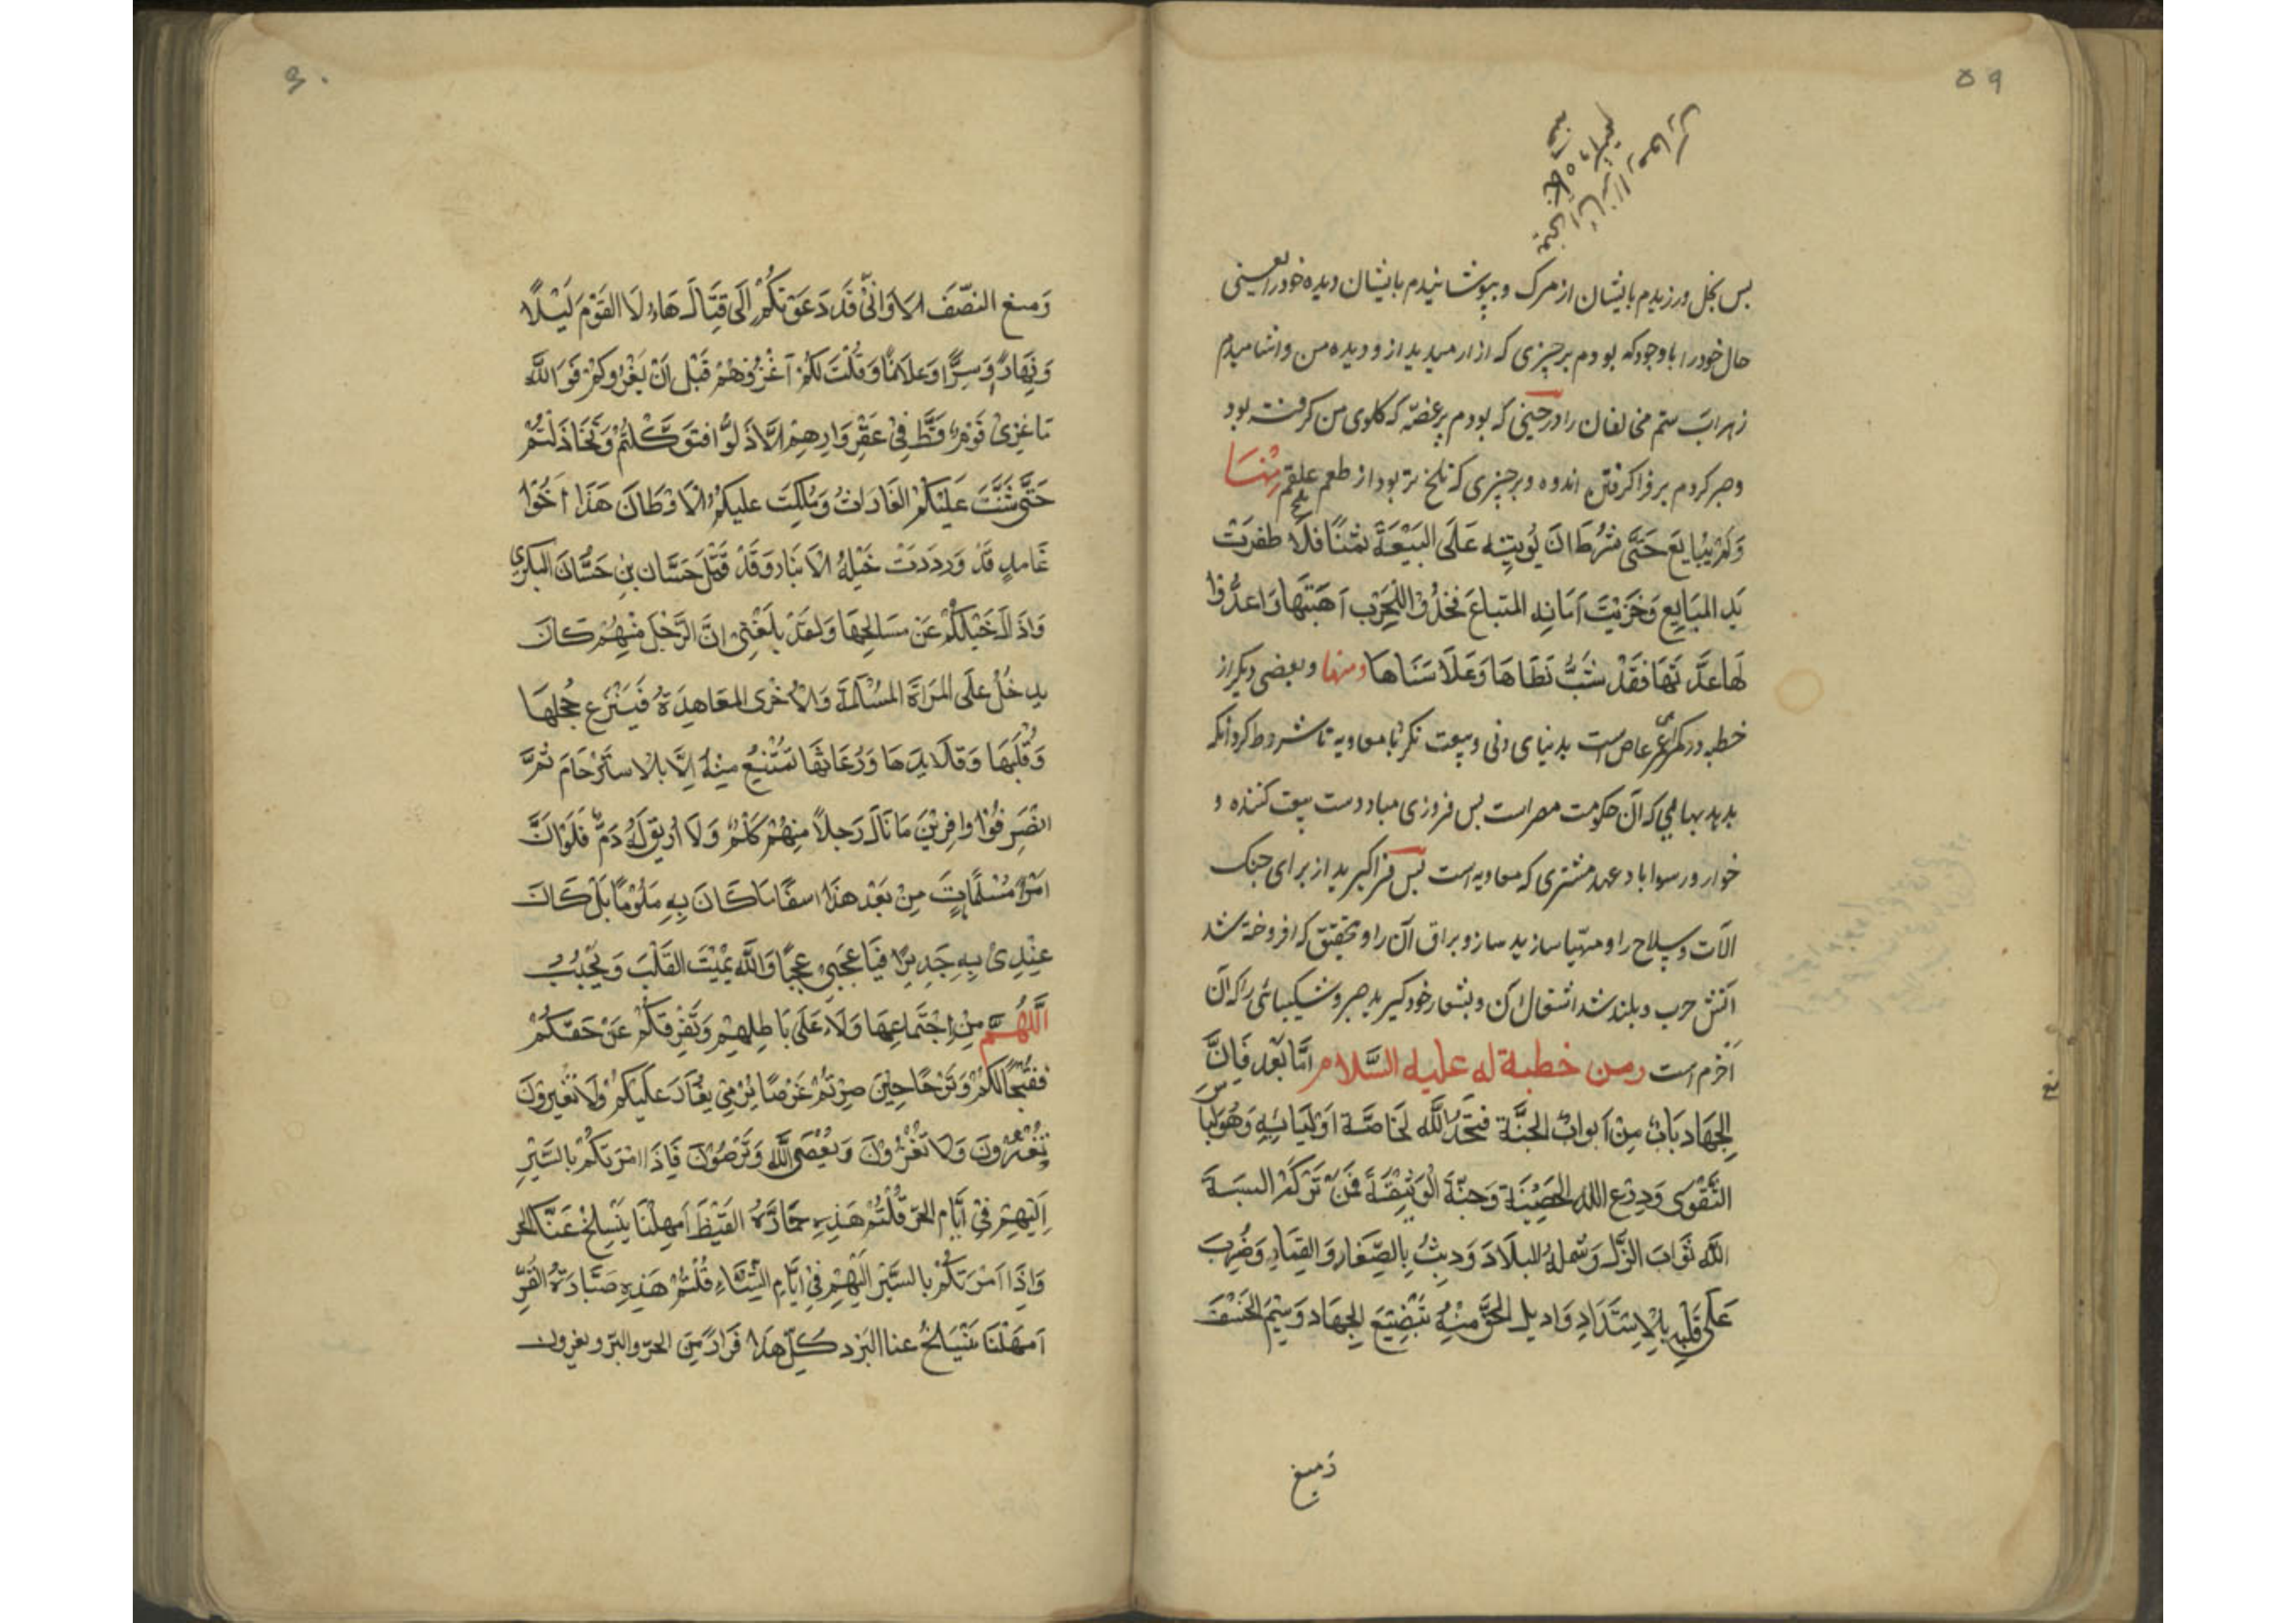 ۵۹
بس بخل ورزیدم بایشان از مرک و بپوشانیدم بایشان دیده خود را یعنی
حال خود را با وجود که بودم بر چیزی که ازار میدید از و دیده من و اشامیدم
زهراب ستم مخالفان را در حینی که بودم بر غصّه که کلوی من کرفته بود
و صبر کردم بر فرا کرفتن اندوه و بر چیزی که تلخ تر بود از طعم علقم مِنْهَا
وَلَمْ یُبَایِعْ حَتَّی شَرَطَ اَنْ یُؤْتِیَهُ عَلَی البَیْعَةَ ثَمَنًا فَلَا ظفرَتْ
یَدِ المُبَایِعِ وَخَزِیَتْ اَمَانِهِ المُتْبَاعَ فَخُذُوْا لِلْحَرْبِ اَهَبَتَهَا وَاَعِدُّوْا
لَهَا عِدَّتَهَا فَقَدْ شَبُّ لَظَاهَا وَعَلَا سَنَاهَا ومنها و بعضی دیکر از
خطبه در ذکر عمر عاص است بدنیای دنی و بیعت نکرد با معاویه تا شروط کرد آنکه
بدهد بهایی که آن حکومت مصر است بس فروزی مباد دست بیعت کننده و
خوار و رسوا باد عهد مشتری که معاویه است بس فرا کیرید از برای جنک
الآت و سلاح را و مهیّا سازید ساز و براق آن را و بتحقیق که افروخته شد
اتش حرب و بلند شد اشتعال آن و بشعار خود کیرید صبر و شکیبائی را که آن
اخرم است ومن خطبة له علیه السَّلام امَّا بَعْد فَاِنَّ
الجِهَادَ بَابٌ مِنْ اَبوابْ الجنَّة فَتَحَهُ اللّٰه لخَاصَّة اَوْلیَائِهِ وَهُوَ لِبَاس
التَّقْوی وَدِرْع اللّٰه الحَصِیْنَة وَجنَّةَ الوَثِیْقَةَ فَمَنْ تَرَکَهُ البسَهَ
اللّٰه ثَوَابَ الذَّل وَشملهُ البلَاد وَدیثُ بِالصِّغَار وَالقِمَادِ وَضُرِبَ
عَلَی قَلْبِهِ بِالْاِسْتَدَادِ وَادیل الحَقُّ مِنْهُ بَتَضْیِیعِ الجِهَاد وَسِیْمَ الخَسْفَ
وَمنغ
۶۰
وَمنع النصّفَ الا وَانّی قَد دَعَوْتُکُمْ الَی قِتَالِ هَاؤُلَا القَوْمِ لَیْلًا
وَنَهَارً وَسِرًّا وَعلَانًا وَقُلْتُ لَکُمْ اَغْزُوْهُمْ قَبْلَ اَنْ یَغْزُوکُمْ فَوَ اللَّه
مَا غزِیَ قَوْمٌ قَطُّ فِیْ عَقْرِ دَارِهِمْ الَّا ذَلُّوا فَتوَکَّلْتُمْ وَتَخَاذَلْتُمْ
حَتَّی شُنَّتْ عَلَیْکُمْ الغَارَاتُ وَمُلِکَتْ عَلیکُمُ الْاَوْطَانَ هَذَا اَخُوْا
غَامدٍ قَدْ وَرَدَتْ خَیْلِهُ الْاَنبَار وَقَدْ قَتَلَ حَسَّان بنِ حَسَّانَ البکرِی
وَاذَالَ خَیْلَکُمْ عَنْ مَسَالِحِهَا وَلَقَدْ بَلغَنِیْ انَّ الرَّجُل مِنْهُمْ کَانَ
یدخُلُ عَلَی المَرَاَة المُسْلمَةَ وَالْاُخْرَی المعَاهِدَةُ فَیَنْزِع حُجُلهَا
وَقُلْبَهَا وَقَلَایدَهَا وَرُعَاثَهَا تَمْتَنِعُ مِنْهُ اِلَّا بالاستَرْحَام ثُمَّ
انْصَرَفُوْا وَافِرِیْنَ مَا نَالَ رَجلاً مِنْهُمْ کَلْمٌ وَلَا اُرِیْقَ لَهُ دَمٌ فَلَوْ اَنَّ
امرًا مُسْلمًا مَاتَ مِنْ بَعْد هذَا اسفًا مَا کَانَ بِهِ مَلُوْمًا بَلْ کَانَ
عِنْدِیْ بِهِ جَدِیْرًا فَیَا عَجَبِیْ عَجبًا وَاللَّه یُمِیْتَ القَلْبَ وَیَجْلِبُ
اَللّٰهُمَّ مِنِ اجْتِمَاعِهَا وَلَاء عَلَی بَاطِلِهِمْ وَتَفْرقکُمْ عَنْ حَقّکُمْ
فقُبْحًا لَکُمْ وَتَرْحًا حِیْنَ صِرْتُمْ غَرْضًا یُرْمَیْ یُغَارَ عَلَیْکُمْ وَلَا تُغِیْرُوْنَ
تُغْزَوْنَ وَلَا تَغْزُوْنَ وَیُعْصَی اللَّه وَتَرْضَوْنَ فَاِذَا امْرَتکُمْ بِالسَّیْرِ
اِلَیْهِمْ فِیْ اَیَّام الحرّ قُلْتُمْ هَذِهِ حَمَارَّةُ القَیْظَ اَمهِلْنَا یَنْسَلِخْ عَنَّا الحر
وَاِذَا اَمَرْتکُمْ بِالسَّیْر اِلَیْهِمْ فِیْ اَیَّام الشِّتَاءِ قُلْتُمْ هَذِهِ صَبَّارَةُ القُرِّ
اَمْهلْنَا یَنْسَلخُ عنا البَرْد کُلّ هَذَا فَرَارًا مِنَ الحَرّ والبَرّ